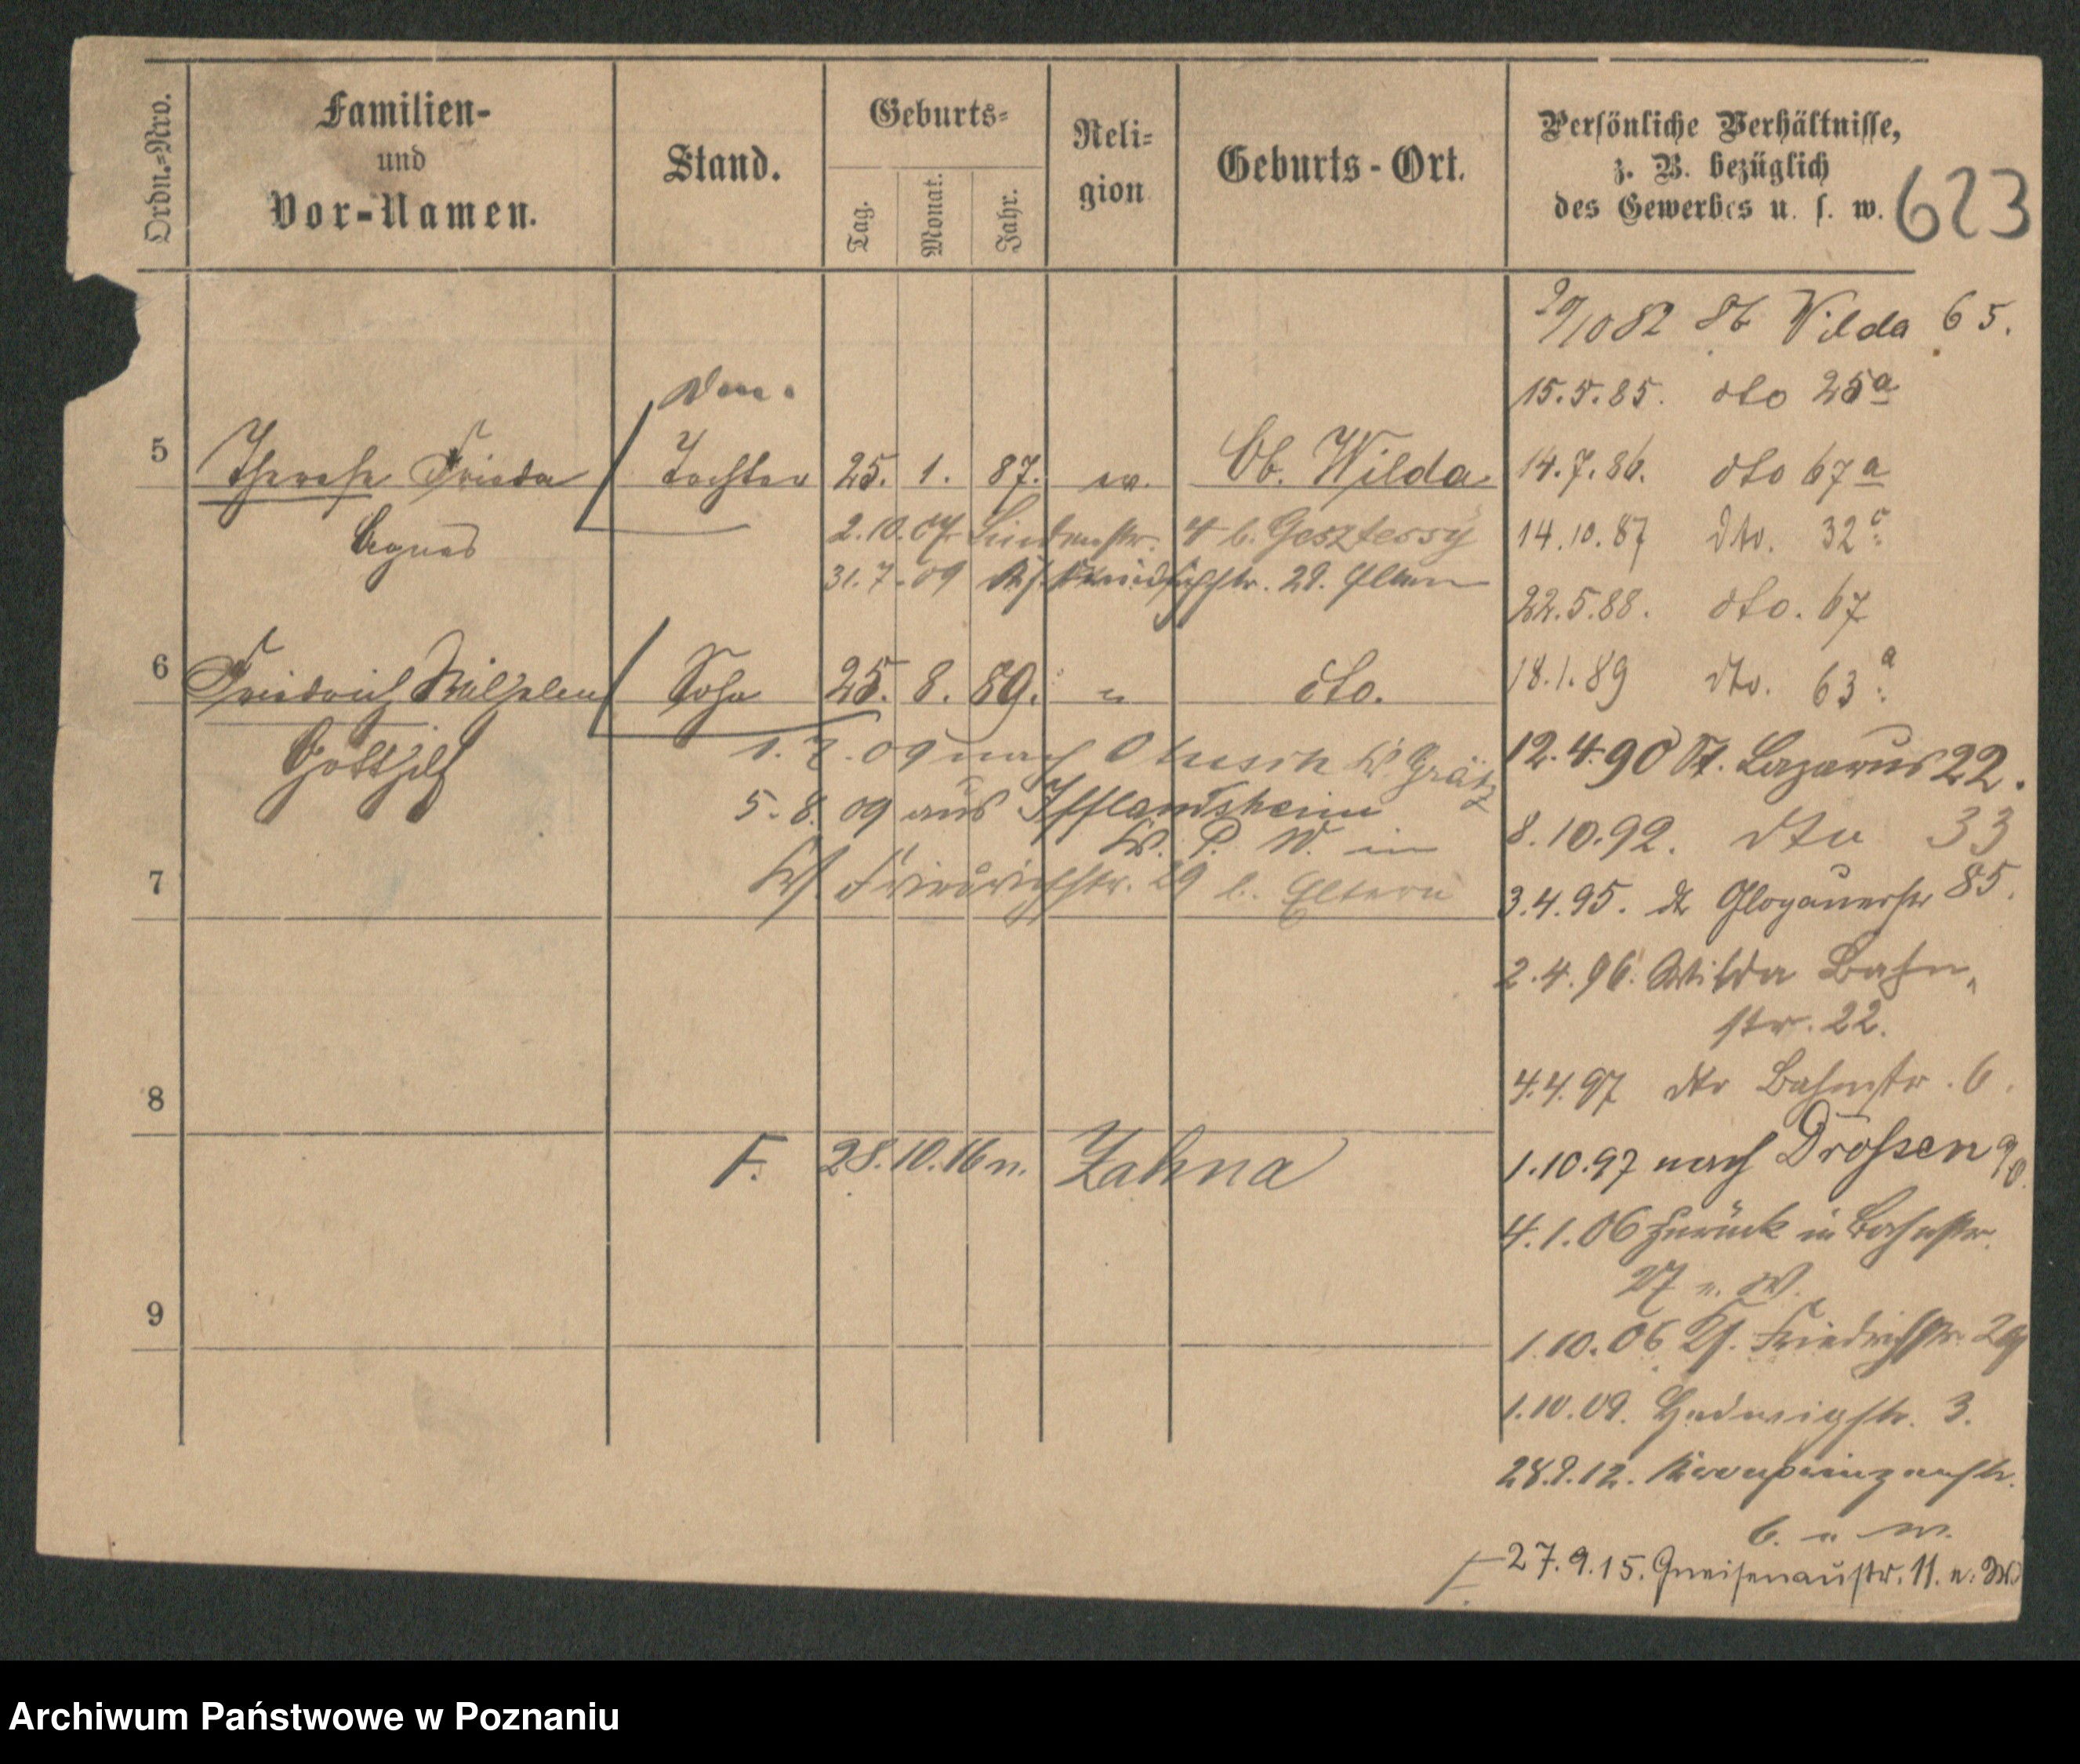 Ordn.-Nro.
Familien-
und
Vor-Namen.
Stand.
Geburts-
Tag.
Monat.
Jahr.
Reli-
gion
Geburts-Ort.
Persönliche Verhältnisse,
z. B. bezüglich
des Gewerbes u. s. w.
623
29/10 82 Ob Wilda 65.
15.5.85. dto 25a
5 Therese Frieda Tochter 25. 1. 87. ev. Ob. Wilda
14.7.86. dto 67a
Agnes
2.10.07. Lindenstr. 4 b. Gesztessy
14.10.87 dto. 32c
31.7.09 Ks. Friedrichstr. 29. Eltern
22.5.88. dto. 67
6 Friedrich Wilhelm Sohn 25. 8. 89. " dto.
18.1.89 dto. 63a
Gotthilf
1.7.09 nach Opusin Kr. Grätz
12.4.90 St. Lazarus 22.
5.8.09 aus Ifflandsheim
Kr. P. W. in
8.10.92. dto 33
7
Ks. Friedrichstr. 29 b. Eltern
3.4.95. dto Glogauerstr 85.
2.4.96. Wilda Bahn-
str. 22.
8
4.4.97 dto Bahnstr. 6.
F. 28.10.16 n. Zahna
1.10.97 nach Drossen
4.1.06 zurück in Bahnstr.
27 n. W.
9
1.10.06 Ks. Friedrichstr. 29
1.10.09. Hedwigstr. 3.
28.9.12. Kronprinzenstr.
6. n W.
F. 27.9.15. Gneisenaustr. 11. n. W.
Archiwum Państwowe w Poznaniu